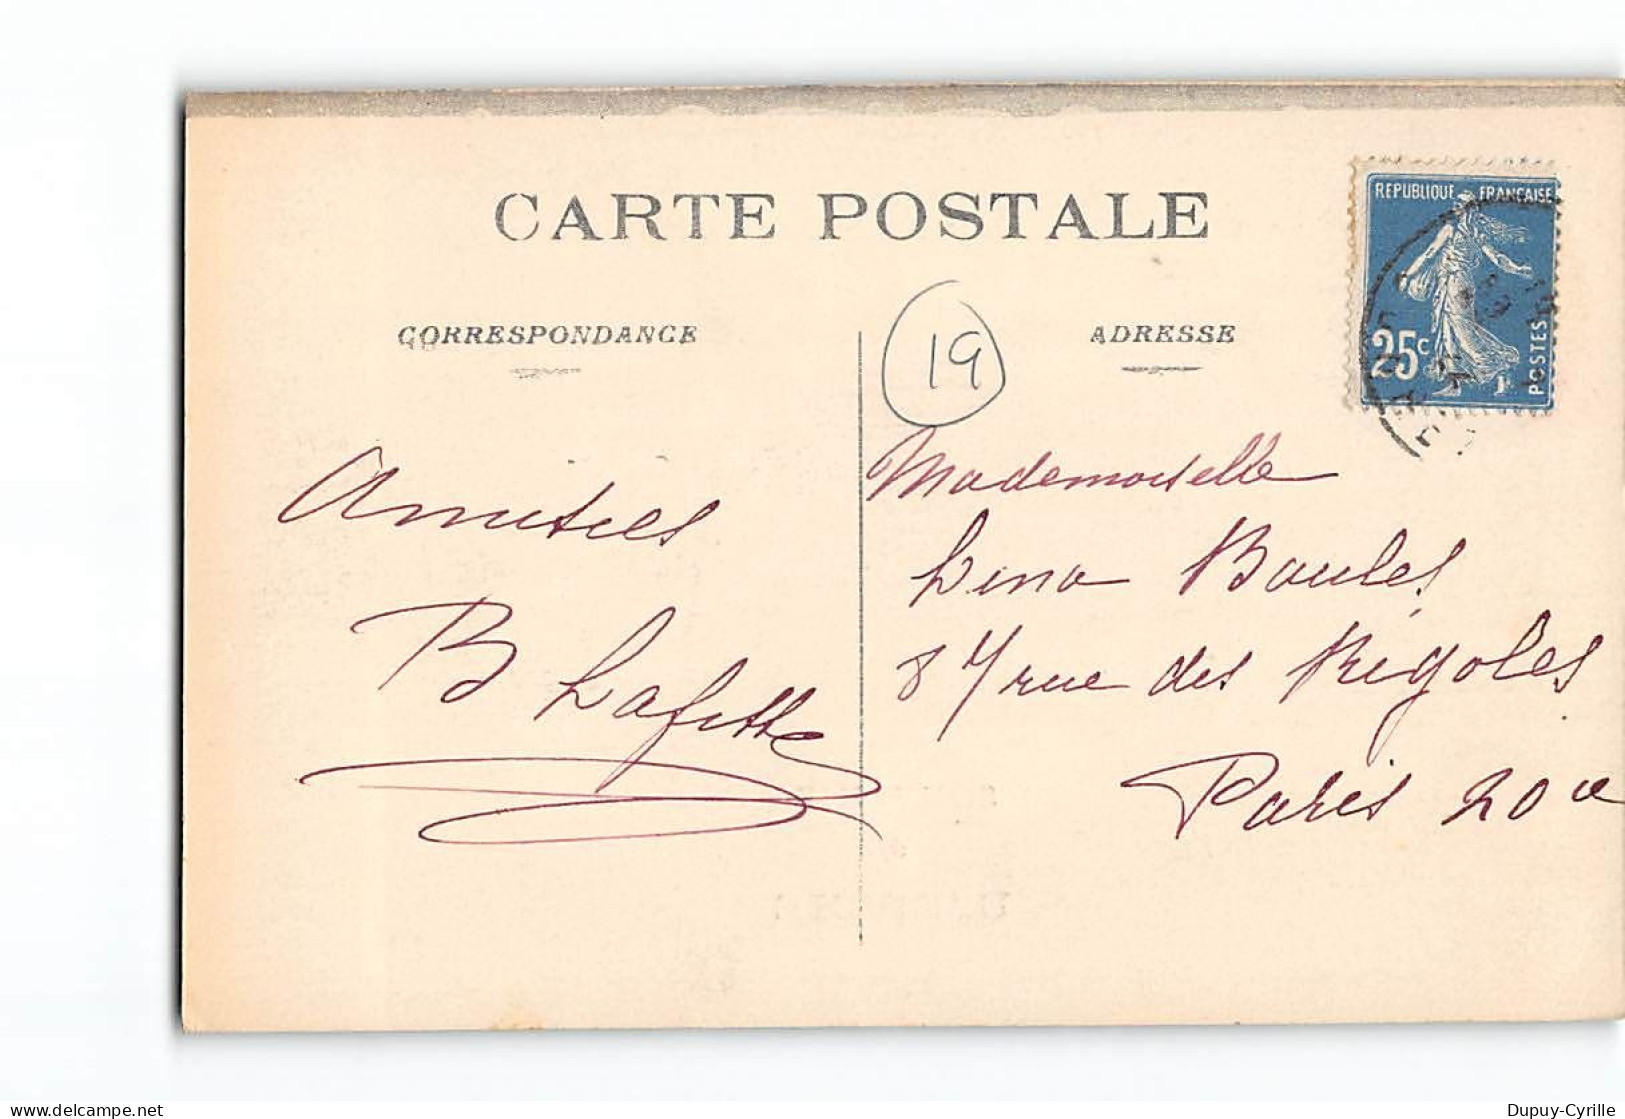 CARTE POSTALE
REPUBLIQUE FRANÇAISE
25c
POSTES
CORRESPONDANCE
ADRESSE
19
Amitiés
B Lafitte
Mademoiselle
Lina Boules
87 rue des Rigoles
Paris 20e
Dupuy-Cyrille